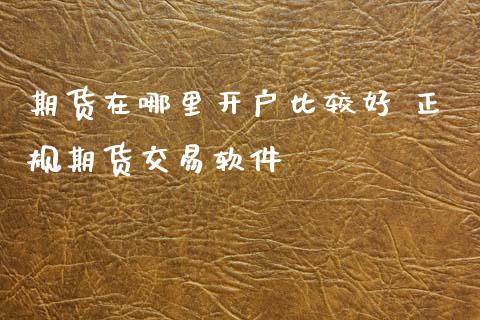 期货在哪里开户比较好 正
规期货交易软件